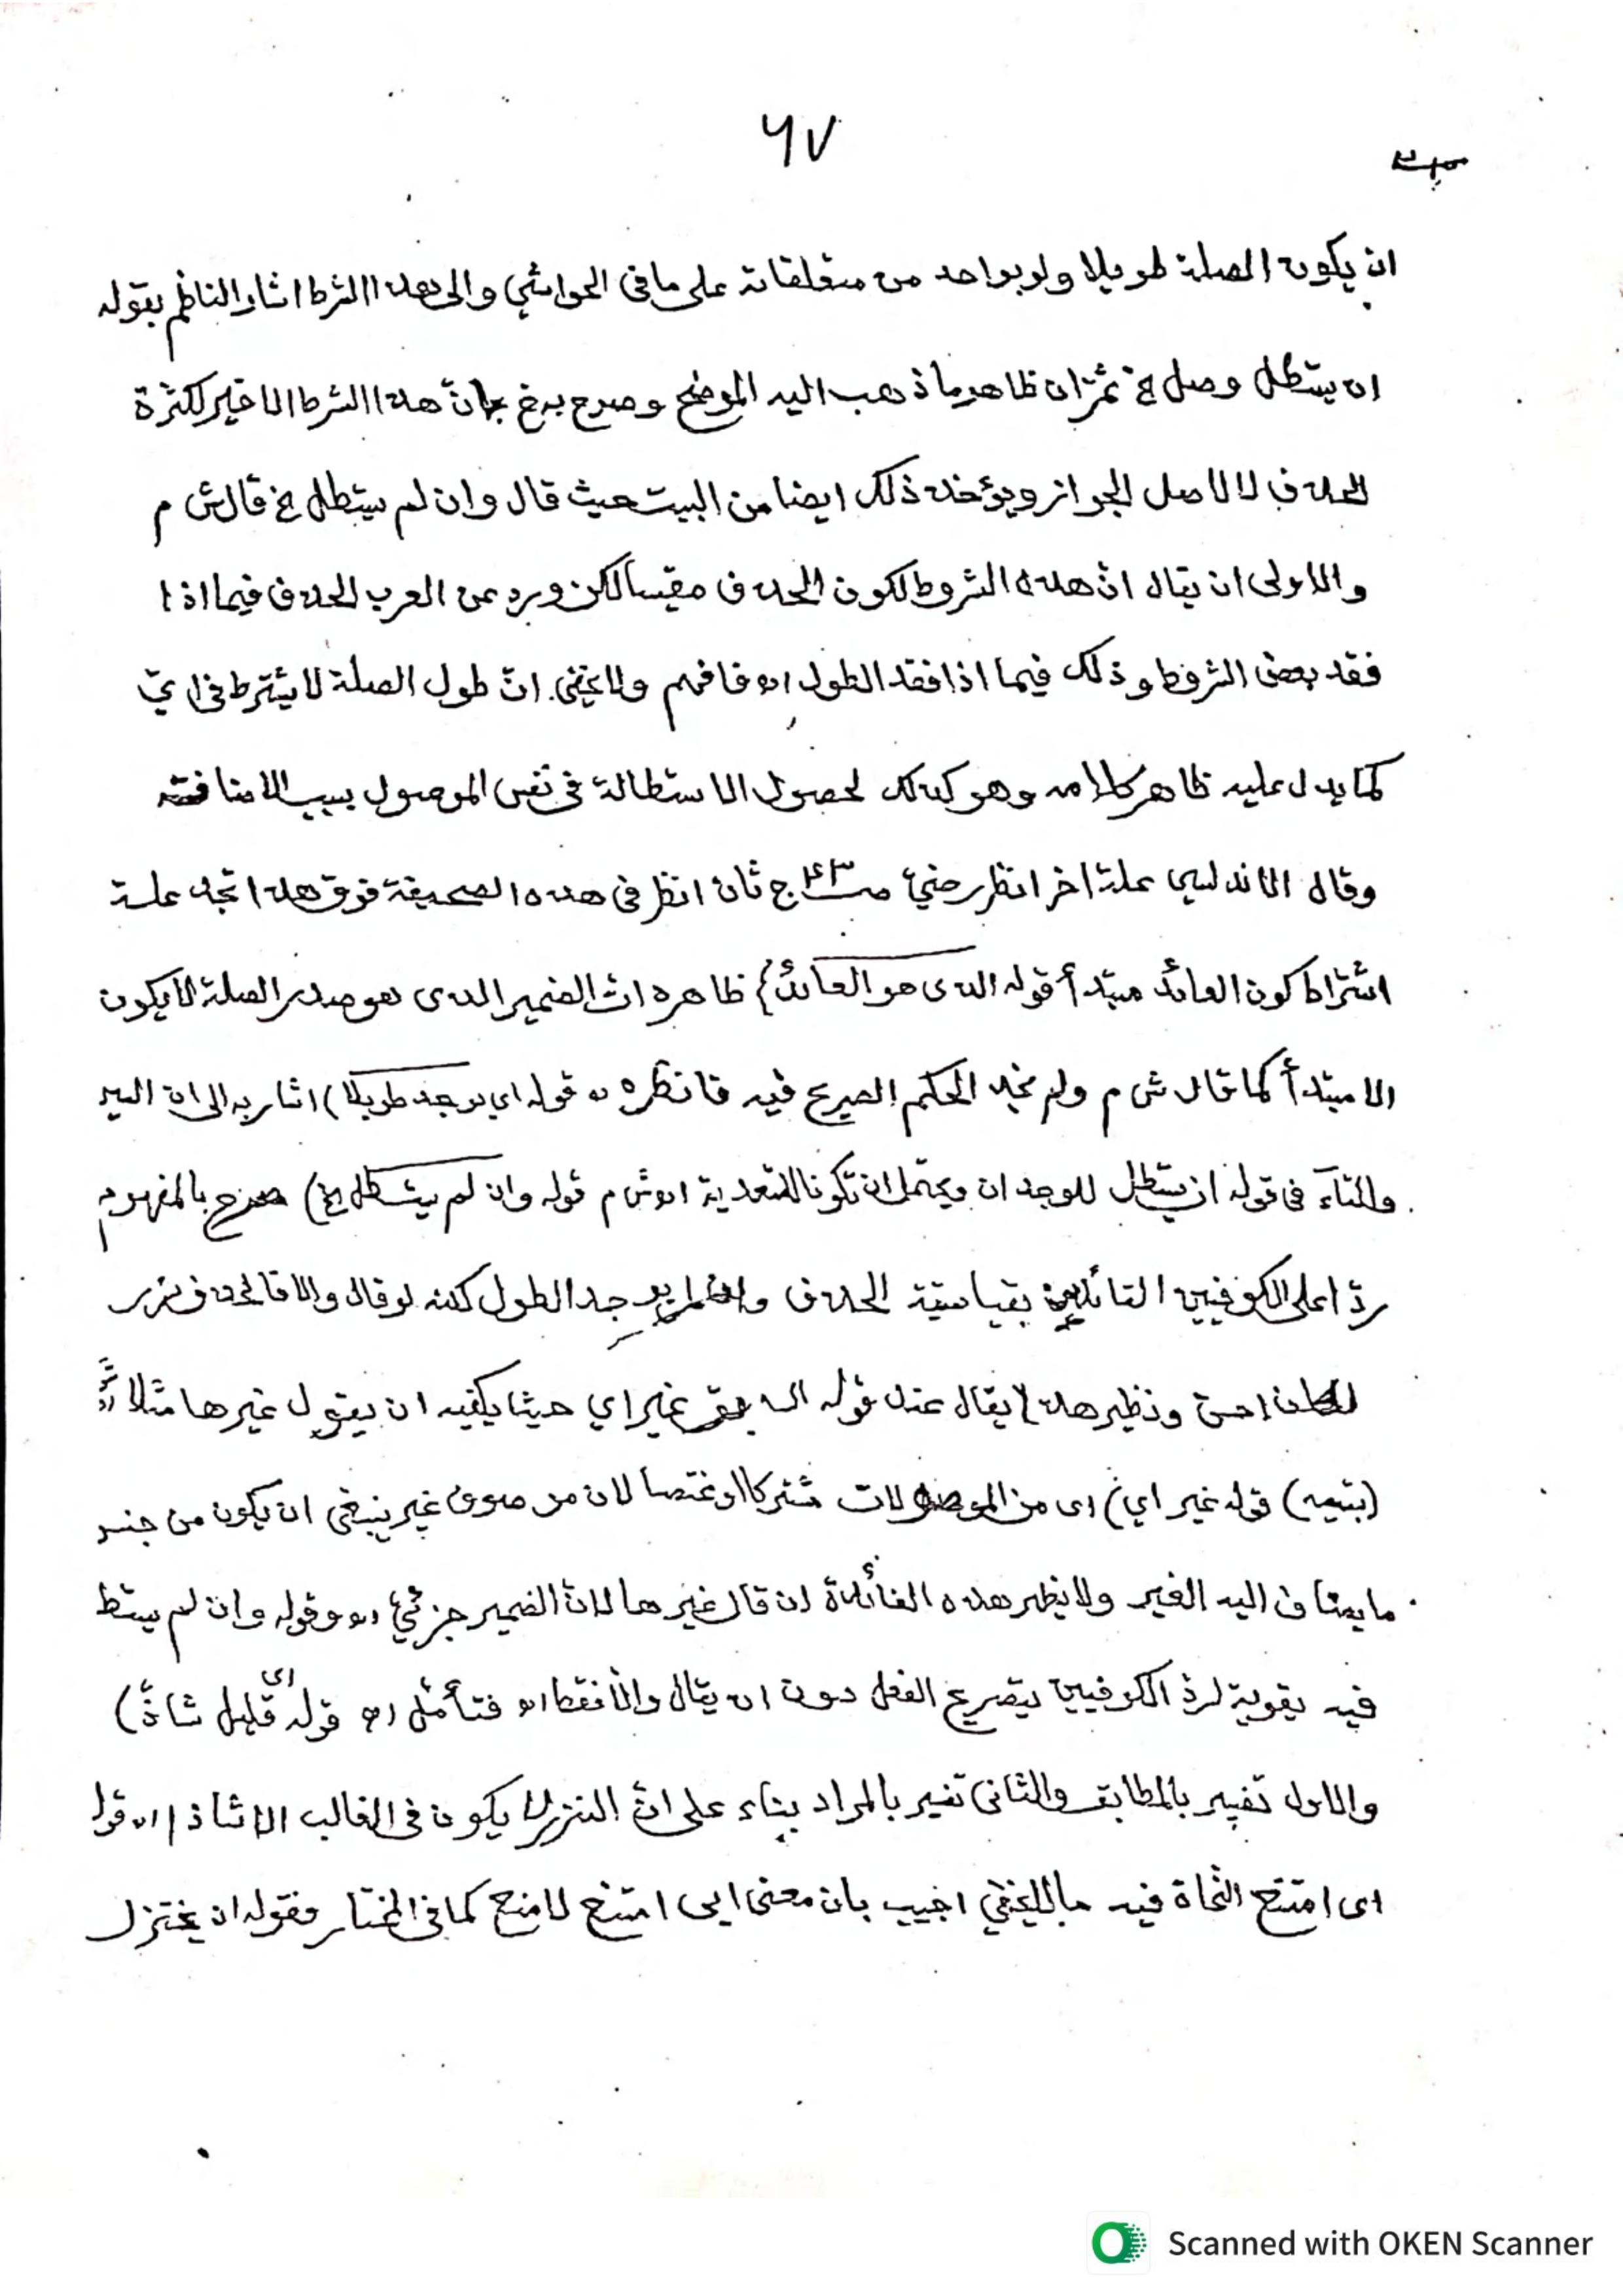 ٦٧
ان يكون الصلة طويلا ولو بواحد من متعلقاته على ما فى الحواشي والى هذا الشرط اشار الناظم بقوله
ان يستطل وصل الخ ثم ان ظاهر ما ذهب اليه الموضح وصرح به غ بانّ هذا الشرط الاخير لكثرة
الحذف لا لاصل الجواز ويؤخذ ذلك ايضا من البيت حيث قال وان لم يستطل الخ قال ش م
والاولى ان يقال انّ هذه الشروط لكون الحذف مقيسا لكن ورد عن العرب الحذف فيما اذا
فقد بعض الشروط وذلك فيما اذا فقد الطول اه فافهم ولا يخفى انّ طول الصلة لا يشترط في ايّ
كما يدل عليه ظاهر كلامه وهو كذلك لحصول الاستطالة فى نفس الموصول بسبب الاضافة
وقال الاندلسي علة اخر انظر رضيّ صـ٤٣ ج ثان انظر فى هذه الصحيفة فوق هذا تجد علة
اشتراط كون العائد مبتدأ قوله الذى هو العائد) ظاهره انّ الضمير الذى هو صدر الصلة لا يكون
الا مبتدأ كما قال ش م ولم نجد الحكم الصريح فيه فانظره قوله اي يوجد طويلا) اشار به الى ان السين
والتاء فى قوله ان يستطل للوجدان ويحتمل ان تكونا للتعدية اه ش م قوله وان لم يستطل الخ) صرح بالمفهوم
ردّا على الكوفيين القائلين بقياسية الحذف وان لم يوجد الطول لكنه لو قال والا فالحذف نزر
لكان احسن ونظير هذا يقال عند قوله غير اي حيث يكفيه ان يقول غيرها مثلا
(تنبيه) قوله غير اي) اى من الموصولات مشتركا او مختصا لان موصوف غير ينبغى ان يكون من جنس
ما يضاف اليه الغير ولا يظهر هذه الفائدة ان قال غيرها لانّ الضمير جزئيّ اه وقوله وان لم يستطل
فيه تقوية لردّ الكوفيين بتصريح الفعل دون ان يقال والاّ فقط اه فتأمّل اه قوله اى قليل شاذّ)
والاول تفسير بالمطابق والثانى تفسير بالمراد بناء على انّ النزر لا يكون فى الغالب الا شاذا اه قوله
اى امتنع النحاة فيه ما لا يخفى اجيب بان معنى ابى امتنع لا منع كما فى المختار فقوله ان يختزل
Scanned with OKEN Scanner